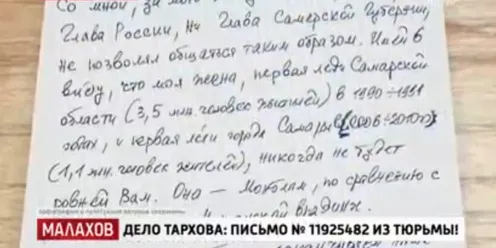 Со мной, за мою
Глава России, ни Глава Самарской Губернии,
не позволял общаться таким образом. Имей в
виду, что моя жена, первая леди Самарской
области (3,5 млн. человек жителей) в 1990÷1991
годах, и первая леди города Самары (2006÷2010)
(1,1 млн. человек жителей), никогда не будет
ровней Вам. Она – Монблан, по сравнению с
впадин
орфография и пунктуация авторов сохранены
МАЛАХОВ ДЕЛО ТАРХОВА: ПИСЬМО № 11925482 ИЗ ТЮРЬМЫ!